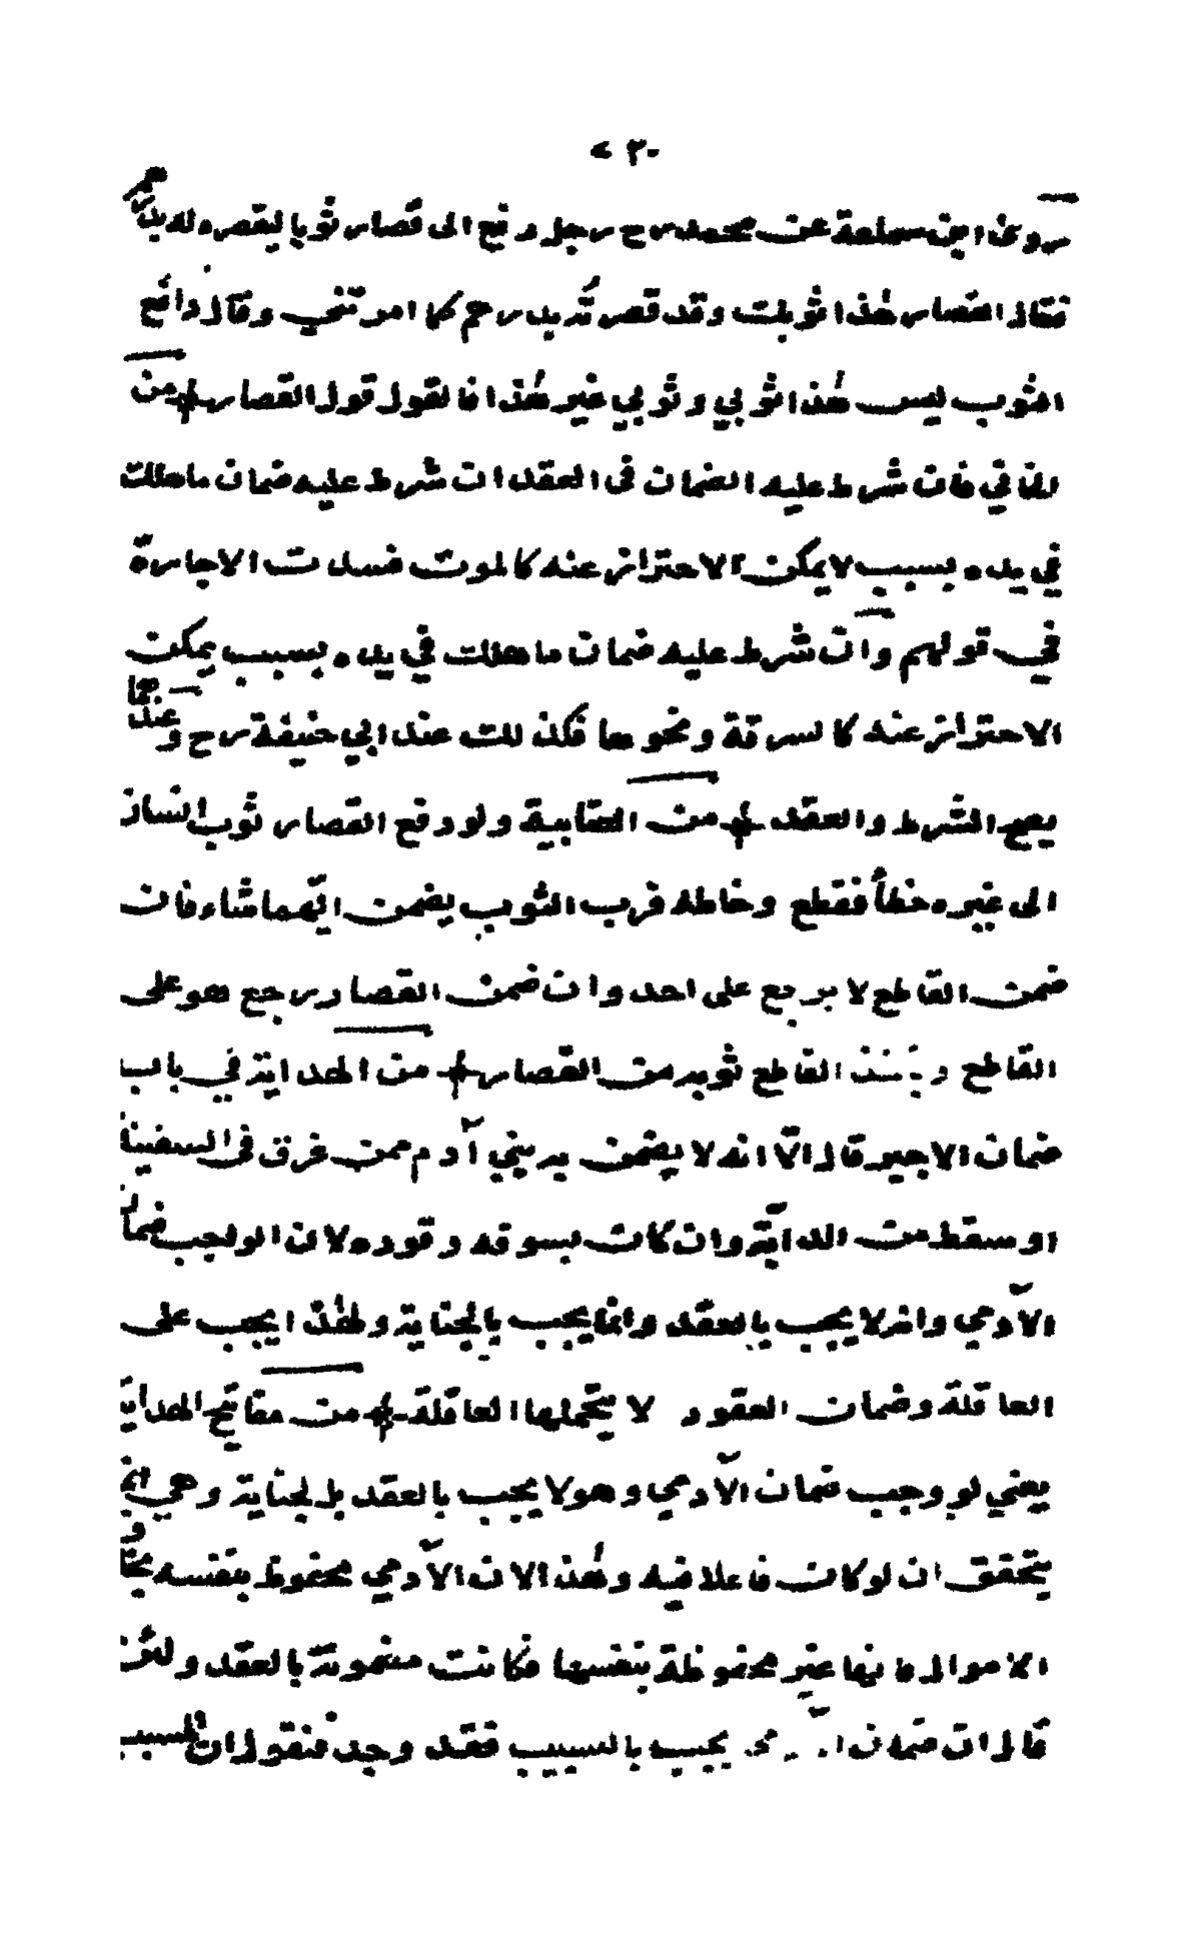 ٣٠
روى ابن سماعة عن محمد رح رجل دفع الى قصار ثوبا ليقصره له بدرهم
فقال القصار هذا ثوبك وقد قصرته بدرهم كما امرتني وقال دافع
الثوب ليس هذا ثوبي وثوبي غير هذا فالقول قول القصار من
الخاني فان شرط عليه الضمان فى العقد ان شرط عليه ضمان ما هلك
في يده بسبب لا يمكن الاحتراز عنه كالموت فسدت الاجارة
في قولهم وان شرط عليه ضمان ما هلك في يده بسبب يمكن
الاحتراز عنه كالسرقة ونحوها فكذلك عند ابي حنيفة رح وعندهما
يصح الشرط والعقد من العتابية ولو دفع القصار ثوب انسان
الى غيره خطأ فقطع وخاطه فرب الثوب يضمن ايهما شاء فان
ضمن القاطع لا يرجع على احد وان ضمن القصار رجع هو على
القاطع وياخذ القاطع ثوبه من القصار من الهداية في باب
ضمان الاجير قال الا انه لا يضمن به بني آدم ممن غرق فى السفينة
او سقط من الدابة وان كان بسوقه وقوده لان الواجب ضمان
الآدمي وانه لا يجب بالعقد وانما يجب بالجناية ولهذا يجب على
العاقلة وضمان العقود لا يتحملها العاقلة من مفاتيح الهداية
يعني لو وجب ضمان الآدمي وهو لا يجب بالعقد بل لجناية وهي انما
يتحقق ان لو كان فاعلا فيه وهذا لان الآدمي محفوظ بنفسه بخلاف
الاموال فانها غير محفوظة بنفسها فكانت مضمونة بالعقد ولئن
قال ان ضمان الآدمى يجب بالسبب فقد وجد فنقول ان السبب